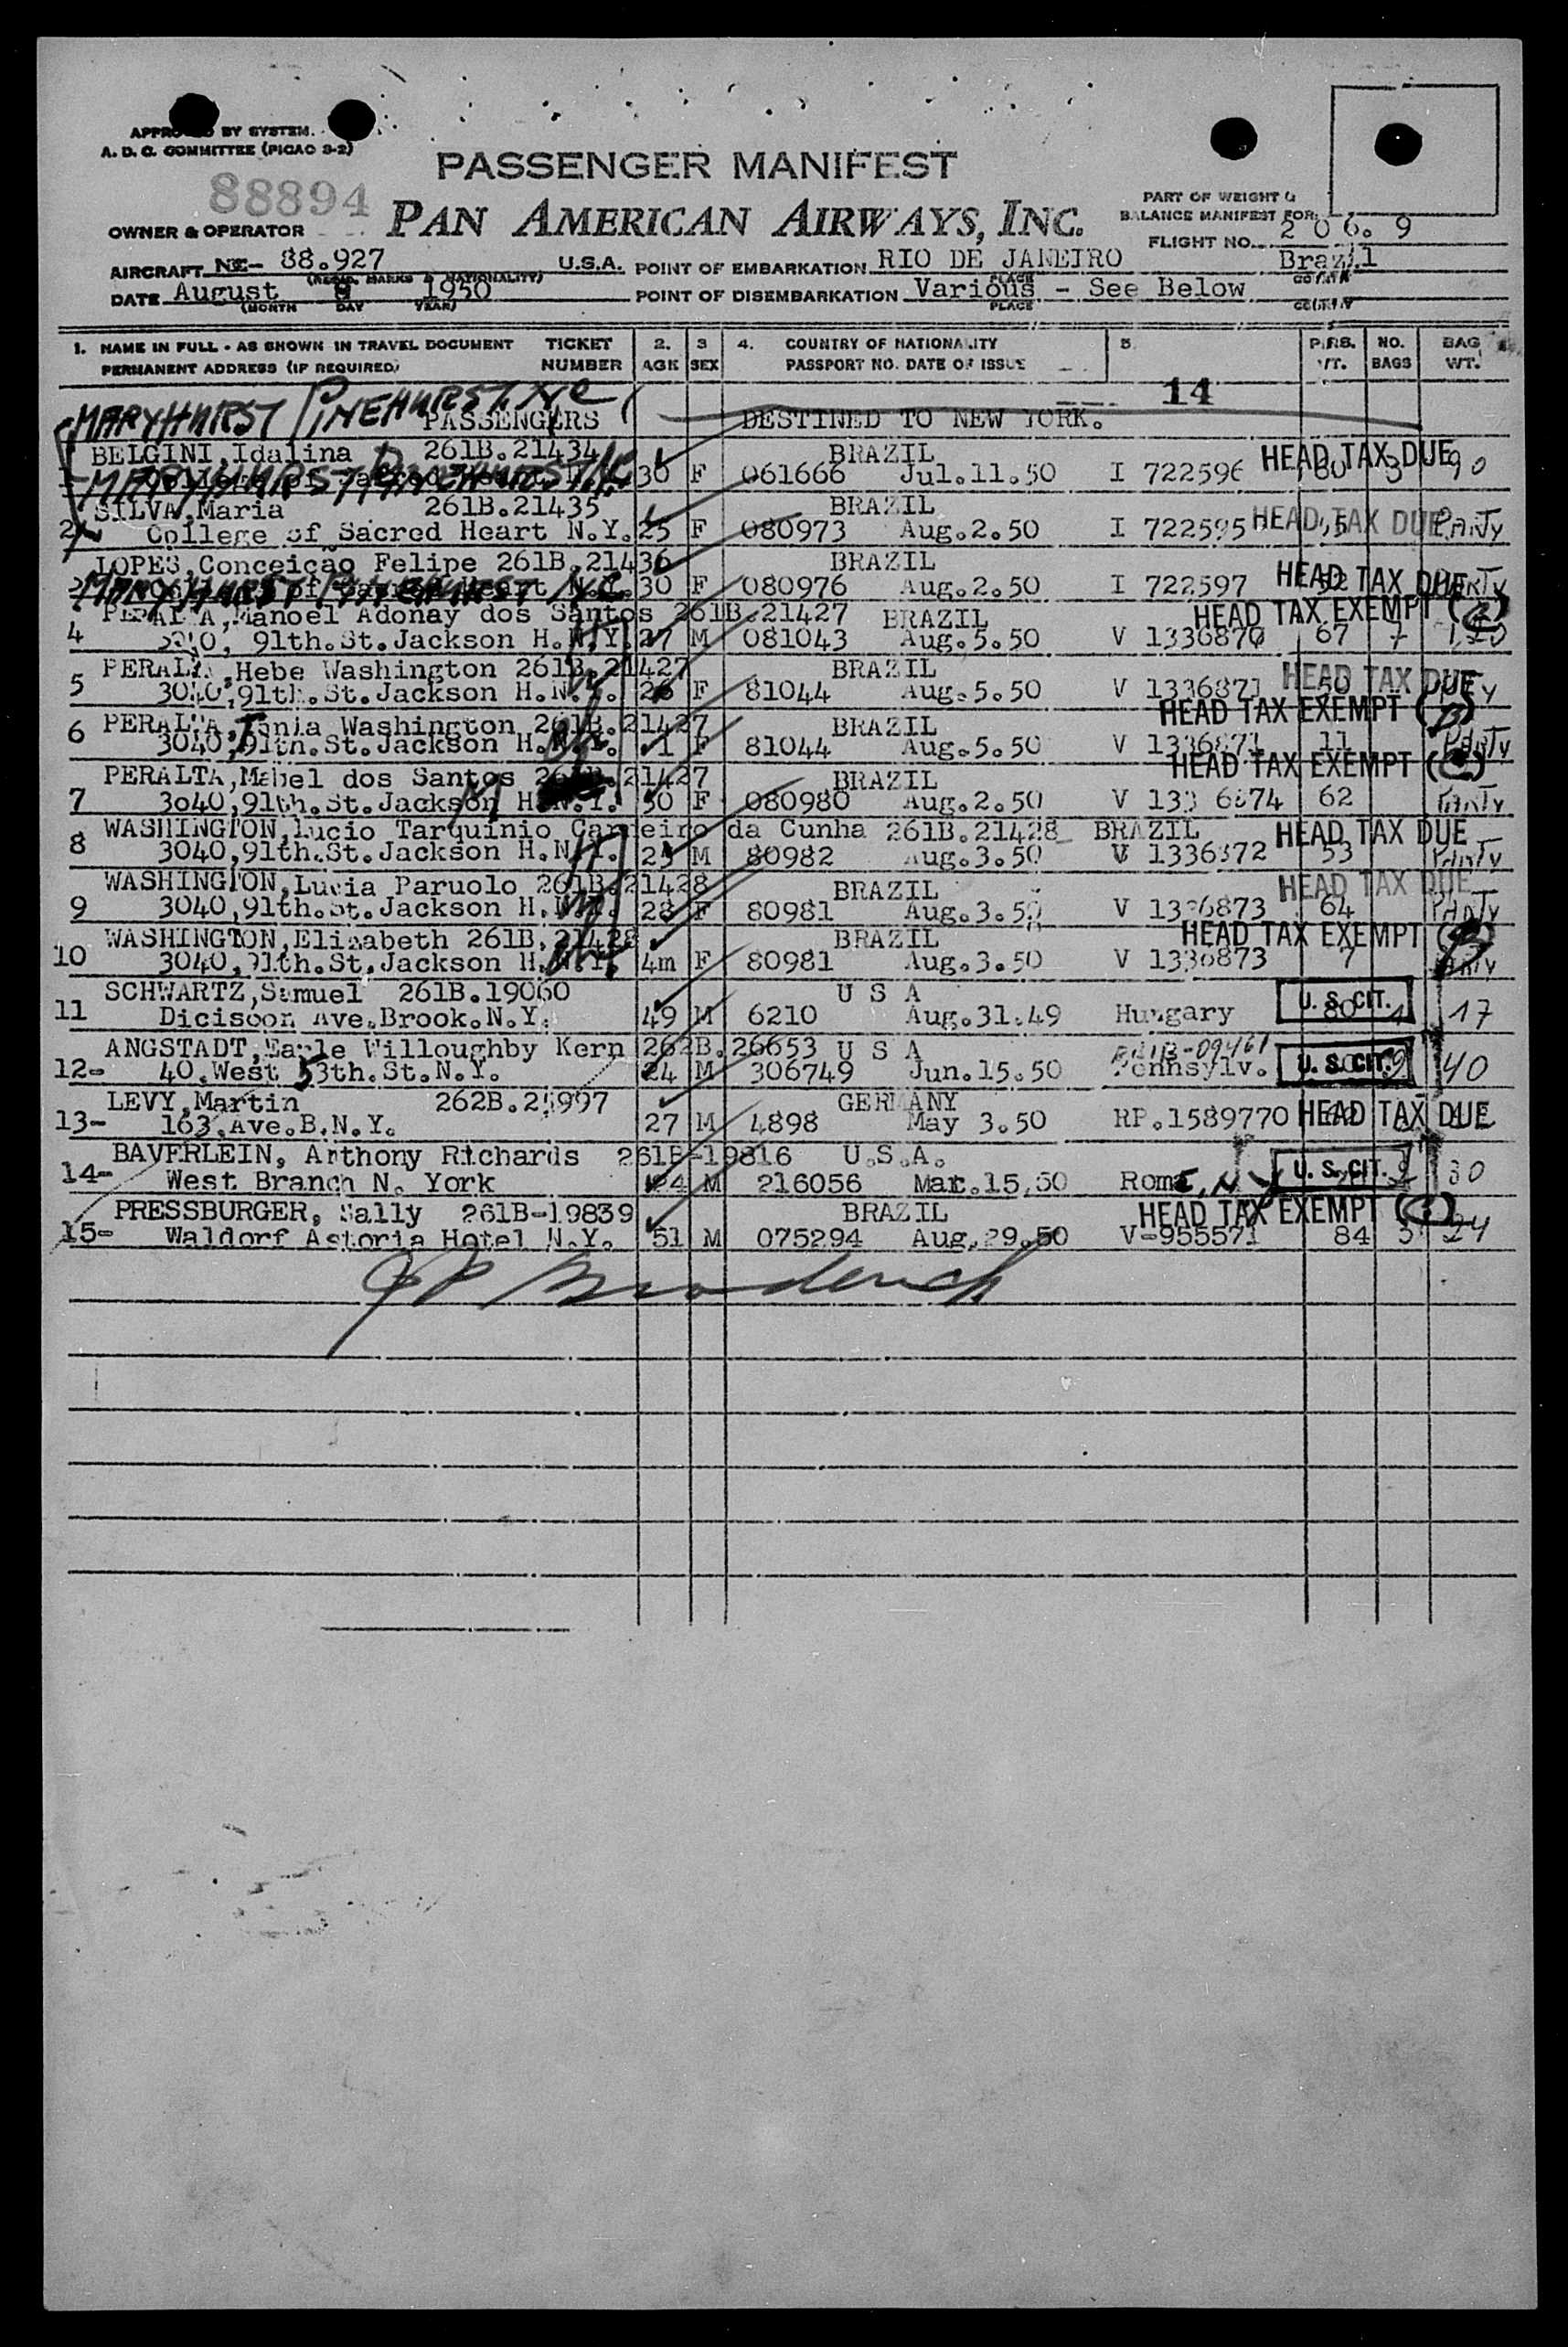 APPROVED BY SYSTEM.
A. D. C. COMMITTEE (PICAO 3-2)
88894
PASSENGER MANIFEST
PART OF WEIGHT &
BALANCE MANIFEST FOR
OWNER & OPERATOR PAN AMERICAN AIRWAYS, INC.
FLIGHT NO. 206. 9
AIRCRAFT NC- 88.927 U.S.A. POINT OF EMBARKATION RIO DE JANEIRO Brazil
(REGIS. MARKS & NATIONALITY) PLACE COUNTRY
DATE August 1950 POINT OF DISEMBARKATION Various - See Below
(MONTH DAY YEAR) PLACE COUNTRY
1. NAME IN FULL - AS SHOWN IN TRAVEL DOCUMENT TICKET 2. 3 4. COUNTRY OF NATIONALITY 5. PASS. NO. BAG
PERMANENT ADDRESS (IF REQUIRED) NUMBER AGE SEX PASSPORT NO. DATE OF ISSUE WT. BAGS WT.
14
MARYHURST PINEHURST. NC
PASSENGERS DESTINED TO NEW YORK.
BELGINI,Idalina 261B.21434 BRAZIL HEAD TAX DUE
MARYHURST PINEHURST N.C. 30 F 061666 Jul.11.50 I 722596 80 3 90
SILVA,Maria 261B.21435 BRAZIL HEAD TAX DUE
2 College of Sacred Heart N.Y. 25 F 080973 Aug.2.50 I 722595 PARTY
LOPES,Conceição Felipe 261B.21436 BRAZIL HEAD TAX DUE
MARYHURST PINEHURST N.C. 30 F 080976 Aug.2.50 I 722597 PARTY
PERALTA,Manoel Adonay dos Santos 261B.21427 BRAZIL HEAD TAX EXEMPT
4 3040, 91th.St.Jackson H.N.Y. 27 M 081043 Aug.5.50 V 1336870 67 7
PERALTA,Hebe Washington 261B.21427 BRAZIL HEAD TAX DUE
5 3040,91th.St.Jackson H.N.Y. 26 F 81044 Aug.5.50 V 1336871
PERALTA,Tania Washington 261B.21427 BRAZIL HEAD TAX EXEMPT
6 3040,91th.St.Jackson H.N.Y. 1 F 81044 Aug.5.50 V 1336871 11 PARTY
PERALTA,Mabel dos Santos 261B.21427 BRAZIL HEAD TAX EXEMPT
7 3o40,91th.St.Jackson H.N.Y. 50 F 080980 Aug.2.50 V 133 6874 62 PARTY
WASHINGTON,Lucio Tarquinio Carneiro da Cunha 261B.21428 BRAZIL HEAD TAX DUE
8 3040,91th.St.Jackson H.N.Y. 25 M 80982 Aug.3.50 V 1336872 53 PARTY
WASHINGTON,Lucia Paruolo 261B.21428 BRAZIL HEAD TAX DUE
9 3040,91th.St.Jackson H.N.Y. 28 F 80981 Aug.3.50 V 1336873 64 PARTY
WASHINGTON,Elizabeth 261B.21428 BRAZIL HEAD TAX EXEMPT
10 3040,91th.St.Jackson H.N.Y. 4m F 80981 Aug.3.50 V 1336873 7
SCHWARTZ,Samuel 261B.19060 U S A
11 Dicisoon Ave.Brook.N.Y. 49 M 6210 Aug.31.49 Hungary U. S. CIT. 80 1 17
ANGSTADT,Earle Willoughby Kern 262B.26653 U S A
12- 40.West 53th.St.N.Y. 24 M 306749 Jun.15.50 Pennsylv. U. S. CIT. 40
LEVY,Martin 262B.25997 GERMANY
13- 163.Ave.B.N.Y. 27 M 4898 May 3.50 RP.1589770 HEAD TAX DUE
BAVERLEIN, Anthony Richards 261B-19816 U.S.A.
14- West Branch N. York 24 M 216056 Mar.15.50 Rome, N.Y U. S. CIT. 30
PRESSBURGER, Sally 261B-19839 BRAZIL HEAD TAX EXEMPT
15- Waldorf Astoria Hotel N.Y. 51 M 075294 Aug.29.50 V-955571 84 3 24